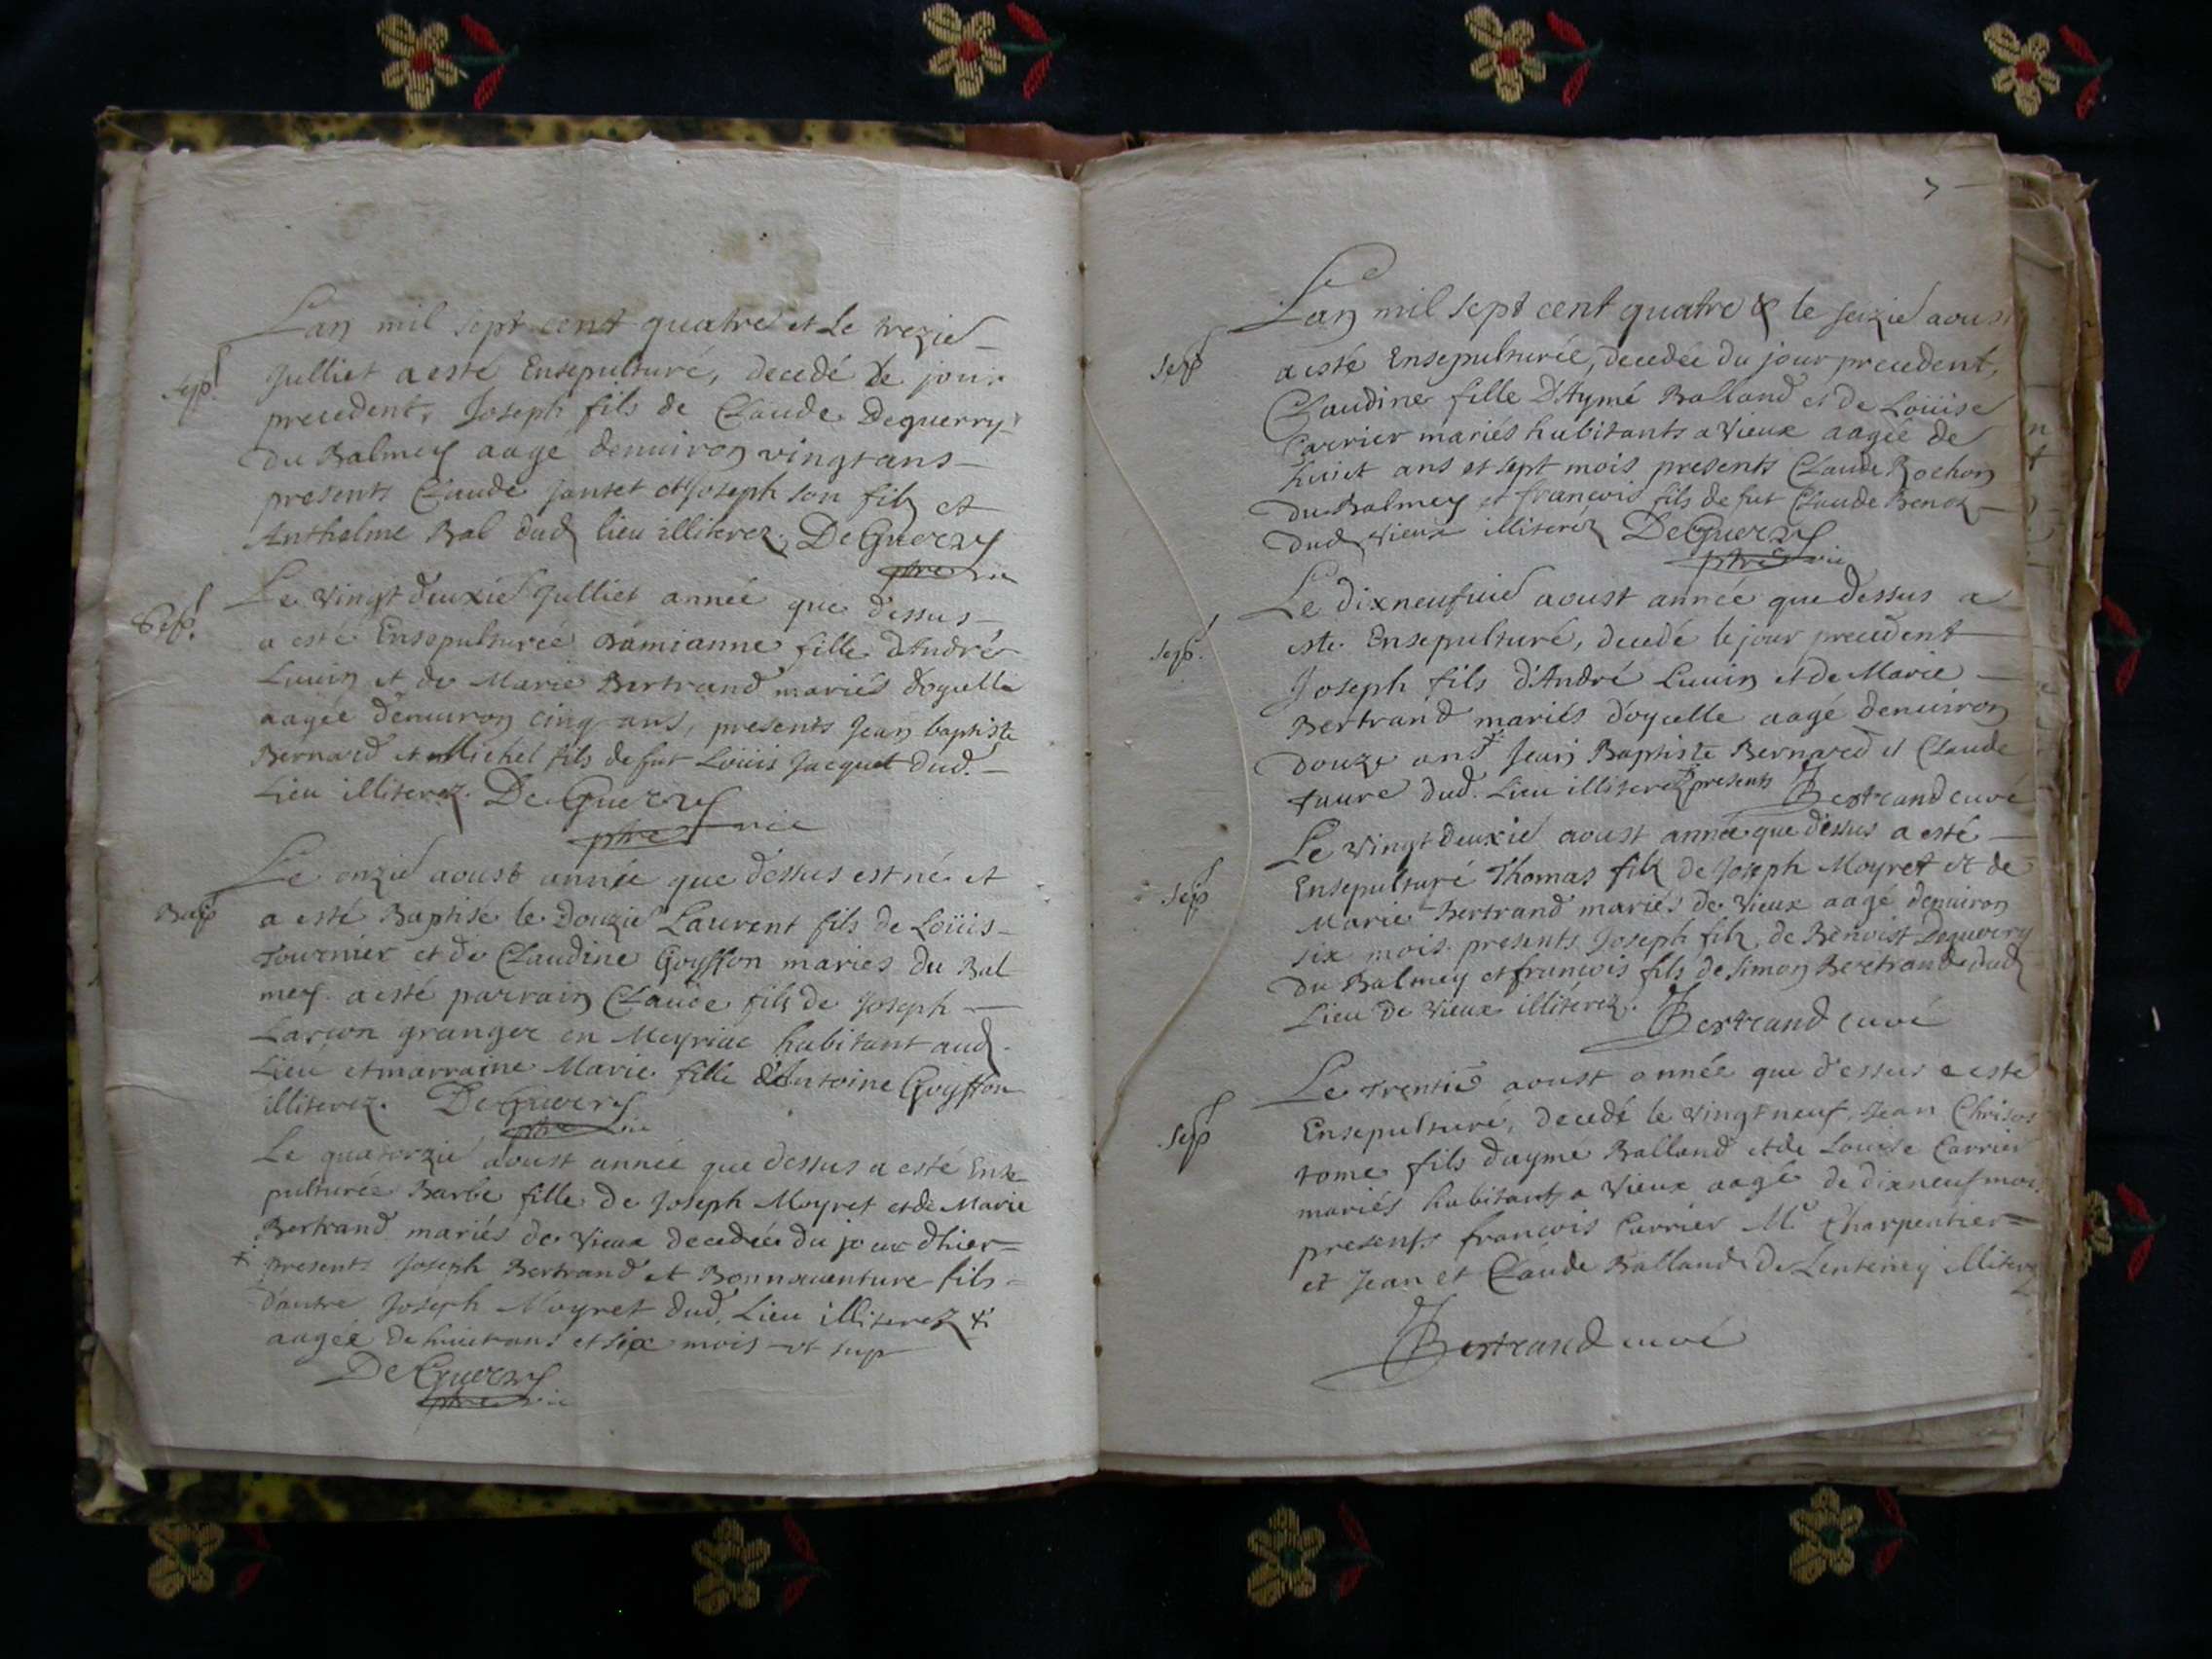 Lan mil sept cent quatre et Le trezie
Sep.
Julliet a esté Ensepulturé, decedé le jour
precedent, Joseph fils de Claude Deguerry
du Balmey aagé denuiron vingt ans
presents Claude Jantet et Joseph son filz et
Anthelme Bal dud lieu illiterez. DeGuerry
ptre vic
Le vingt deuxie Julliet année que dessus
Sep.
a esté Ensepulturée Damianne fille d'André
Luuin et de Marie Bertrand mariés d'ogelle
aagée denuiron cinq ans, presents Jean baptiste
Bernard et Michel fils de fut Loüis Jacquet dud.
Lieu illiterez. DeGuerry
ptre vic
Le onzie aoust année que dessus est né et
Bap
a esté Baptisé le Douzie Laurent fils de Loüis
Tournier et de Claudine Goyffon mariés du Bal
mey. a esté parrain Claude fils de Joseph
Larçon granger en Meyriac habitant aud.
Lieu et marraine Marie fille d'Antoine Goyffon
illiterez. DeGuerry
ptre vic
Le quatorzie aoust année que dessus a esté Ense
pulturée Barbe fille de Joseph Moyret et de Marie
Bertrand mariés de Vieux decedée du jour dhier
presents Joseph Bertrand et Bonnauenture fils
dautre Joseph Moyret dud. Lieu illiterez
aagée de huict ans et six mois ut sup
DeGuerry
ptre vic
7
Lan mil sept cent quatre & le seizie aoust
Sep
a esté Ensepulturée, decedée du jour precedent,
Claudine fille D'Aymé Balland et de Loüise
Carrier mariés habitants a Vieux aagée de
huict ans et sept mois presents Claude Rochon
du Balmey et françois fils de fut Claude Benoz
dud Vieux illiterez DeGuerry
ptre vic
Le dixneufuie aoust année que dessus a
Sep.
esté Ensepulturé, decedé le jour precedent
Joseph fils d'André Luuin et de Marie
Bertrand mariés d'ogelle aagé denuiron
douze ans Jean Baptiste Bernard et Claude
faure dud. Lieu illiterez presents Bertrand curé
Le vingt deuxie aoust année que dessus a esté
Sep
Ensepulturé Thomas filz de Joseph Moyret et de
Marie Bertrand mariés de Vieux aagé denuiron
six mois. presents Joseph filz de Benoist Deguerry
du Balmey et françois fils de Simon Bertrand dud
Lieu de Vieux illiterez. Bertrand curé
Le trentie aoust année que dessus a esté
Sep
Ensepulturé, decedé le vingt neuf, Jean Chrisos
tome fils daymé Balland et de Louise Carrier
mariés habitants a Vieux aagé de dixneuf mois
presents françois Carrier Me Charpentier
et Jean et Claude Balland de Lentenay illiterez
Bertrand curé